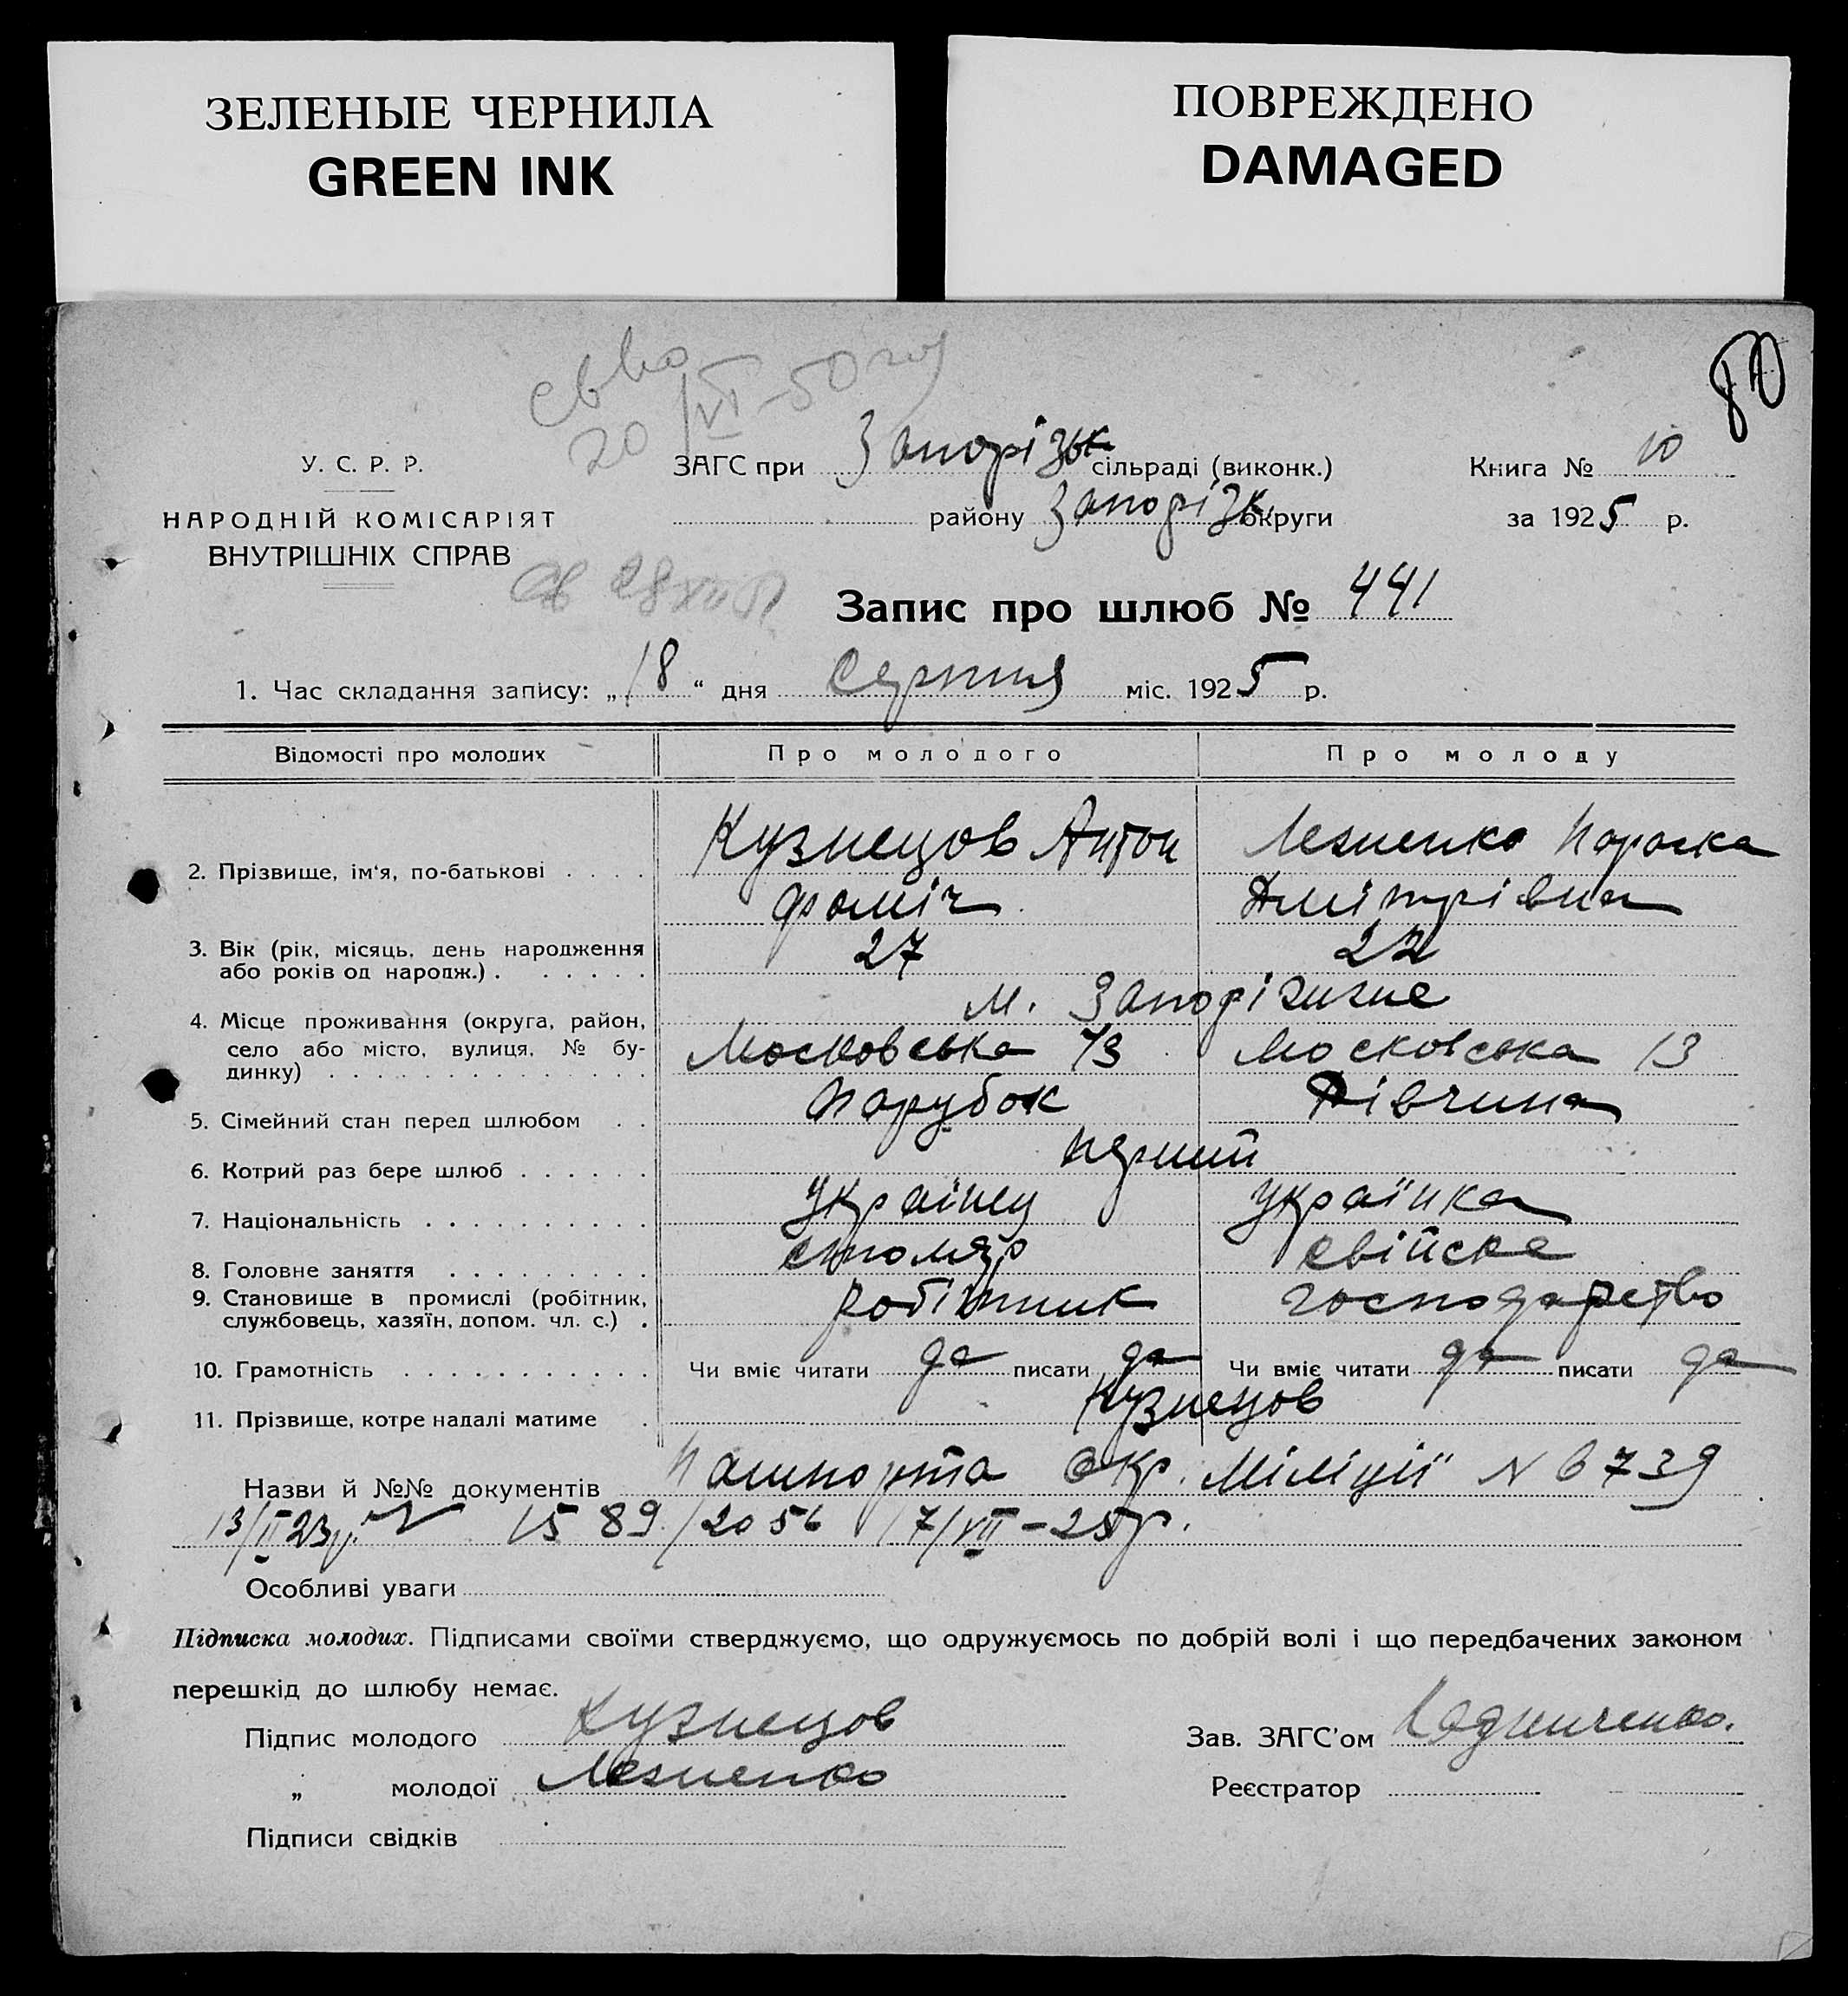 ЗЕЛЕНЫЕ ЧЕРНИЛА
GREEN INK
ПОВРЕЖДЕНО
DAMAGED
80
20/VI-50 год
У. С. Р. Р.
НАРОДНІЙ КОМІСАРІЯТ
ВНУТРІШНІХ СПРАВ
ЗАГС при Запорізьк сільраді (виконк.)
району Запорізк округи
Книга № 10
за 1925 р.
Запис про шлюб № 441
1. Час складання запису: „18“ дня Серпня міс. 1925 р.
Відомості про молодих Про молодого Про молоду
2. Прізвище, ім'я, по-батькові Кузнецов Антон Лезненко Параска
Фоміч Дмітрівна
3. Вік (рік, місяць, день народження або років од народж.) 27 22
м. Запоріжжє
4. Місце проживання (округа, район, село або місто, вулиця, № будинку) Московська 13 Московська 13
5. Сімейний стан перед шлюбом Парубок Дівчина
6. Котрий раз бере шлюб перший
7. Національність Українец Українка
8. Головне заняття столяр свійске
9. Становище в промислі (робітник, службовець, хазяїн, допом. чл. с.) робітник господарство
10. Грамотність Чи вміє читати да писати да Чи вміє читати да писати да
11. Прізвище, котре надалі матиме Кузнецов
Назви й №№ документів Пашпорта Окр. Міліції N 6739
13/II 23р. 1589/2056 17/VII-25р.
Особливі уваги
Підписка молодих. Підписами своїми стверджуємо, що одружуємось по добрій волі і що передбачених законом
перешкід до шлюбу немає.
Підпис молодого Кузнецов
„ молодої Лезненко
Підписи свідків
Зав. ЗАГС'ом
Реєстратор